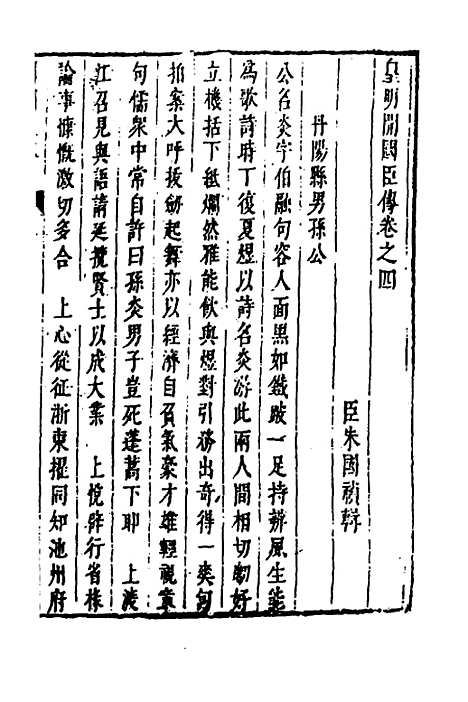 皇明開國臣傳卷之四
臣朱國禎輯
丹陽縣男孫公
公名炎字伯融句容人面黑如鐵跛一足持辨風生能
爲歌詩時丁復夏煜以詩名炎游此兩人間相切劘好
立機括下紙爛然雅能飲與煜對引務出奇得一奭句
拍案大呼拔劒起舞亦以經濟自負氣豪才雄輕視章
句儒衆中常自許曰孫炎男子豈死蓬蒿下耶 上渡
江召見與語請延攬賢士以成大業 上悅辟行省掾
論事慷慨激切多合 上心從征浙東擢同知池州府